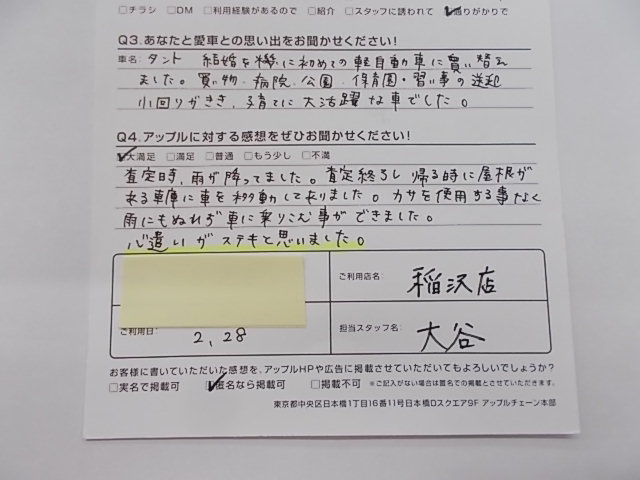 □チラシ □DM □利用経験があるので □紹介 □スタッフに誘われて ☑通りがかりで
Q3.あなたと愛車との思い出をお聞かせください!
車名: タント 結婚を機に初めての軽自動車に買い替え
ました。買い物、病院、公園、保育園・習い事の送迎
小回りがきき、子育てに大活躍な車でした。
Q4.アップルに対する感想をぜひお聞かせください!
☑大満足 □満足 □普通 □もう少し □不満
査定時、雨が降ってました。査定終了し帰る時に屋根が
ある車庫に車を移動してありました。カサを使用する事なく
雨にもぬれず車に乗りこむ事ができました。
心遣いがステキと思いました。
ご利用店名: 稲沢店
ご利用日: 2,28
担当スタッフ名: 大谷
お客様に書いていただいた感想を、アップルHPや広告に掲載させていただいてもよろしいでしょうか?
□実名で掲載可 ☑匿名なら掲載可 □掲載不可 ※ご記入がない場合は匿名での掲載とさせていただきます。
東京都中央区日本橋1丁目16番11号日本橋Dスクエア9F アップルチェーン本部